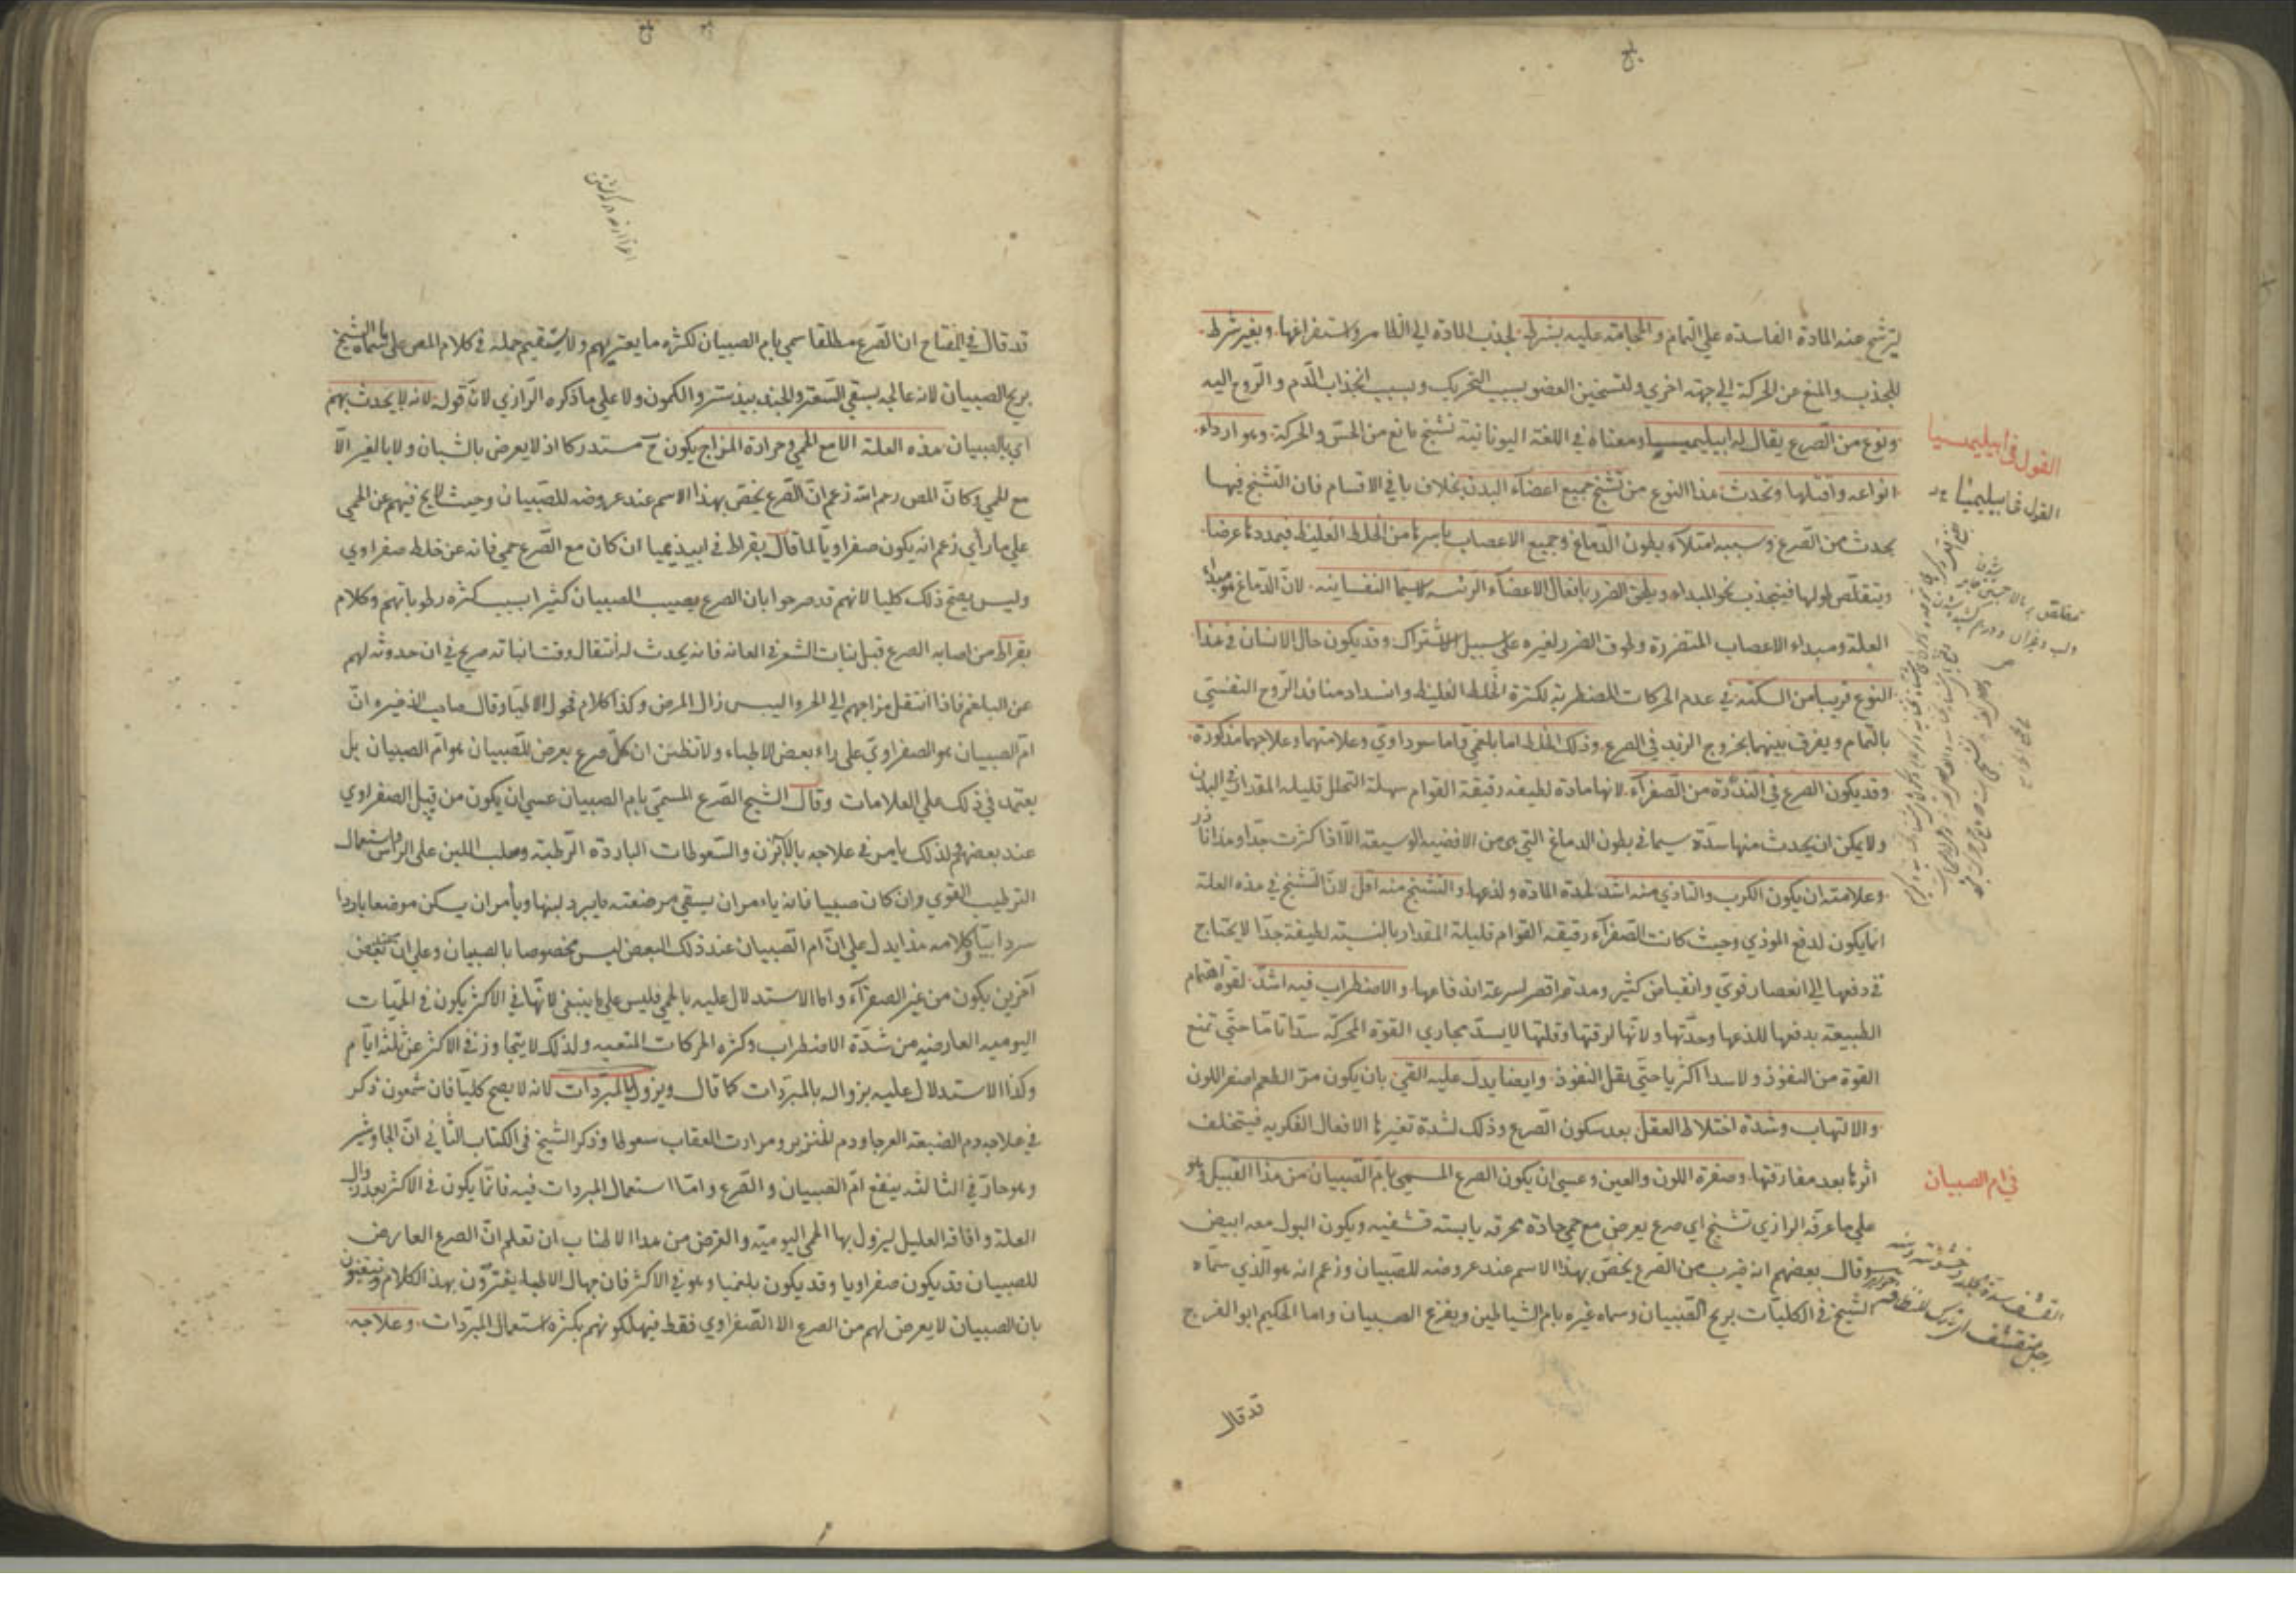 ليترشح عنه المادة الفاسدة علي التمام والحجامة عليه بشرط لجذب المادة الي الظاهر واستفراغها وبغير شرط
للجذب والمنع عن الحركة الي جهة اخري ولتسخين العضو بسبب التحريك وبسبب انجذاب الدم والروح اليه
ونوع من الصرع يقال له ابيليميسيا ومعناه في اللغة اليونانية تشنج مانع من الحس والحركة وهو ارداء
القول في ابيليميسيا
القول في ابيليميسيا
انواعه واقتلها وتحدث هذا النوع من تشنج جميع اعضاء البدن بخلاف باقي الاقسام فان التشنج فيها
يحدث من الصرع وسببه امتلاء بطون الدماغ وجميع الاعصاب باسرها من الخلط الغليظ فيمددها عرضا
ويتقلص طولها فينجذب نحو المبداء ويلحق الضرر بافعال الاعضاء الرئيسة لاسيما النفسانية لان الدماغ هو مبداء
العلة ومبداء الاعصاب المتضررة ولحوق الضرر لغيره علي سبيل الاشتراك وقد يكون حال الانسان في هذا
النوع قريبا من السكتة في عدم الحركات المضطربة لكثرة الخلط الغليظ وانسداد منافذ الروح النفسي
بالتمام ويفرق بينهما بخروج الزبد في الصرع وذلك الخلط اما بلغمي واما سوداوي وعلامتهما وعلاجهما مذكورة
وقد يكون الصرع في الندرة من الصفراء لانها مادة لطيفة رقيقة القوام سهلة التحلل قليلة المقدار في البدن
ولا يمكن ان يحدث منها سدة سيما في بطون الدماغ التي هي من الافضية الوسيعة الا اذا كثرت جدا وهذا نادر
وعلامته ان يكون الكرب والتاذي منه اشد لحدة المادة ولذعها والتشنج منه اقل لان التشنج في هذه العلة
انما يكون لدفع الموذي وحيث كانت الصفراء رقيقة القوام قليلة المقدار بالنسبة لطيفة جدا لا يحتاج
في دفعها الي انعصار قوي وانقباض كثير ومدته اقصر لسرعة اندفاعها والاضطراب فيه اشد لقوة اهتمام
الطبيعة بدفعها للذعها وحدتها ولانها لرقتها وقلتها لا يسد مجاري القوة المحركة سدا تاما حتي تمنع
القوة من النفوذ ولا سدا اكثريا حتي يقل النفوذ وايضا يدل عليه القئ بان يكون مر الطعم اصفر اللون
والالتهاب وشدة اختلاط العقل بعد سكون الصرع وذلك لشدة تغيرها الافعال الفكرية فيتخلف
اثرها بعد مفارقتها وصفرة اللون والعين وعسي ان يكون الصرع المسمي بام الصبيان من هذا القبيل وهو
في ام الصبيان
علي ما عرفه الرازي تشنج اي صرع يعرض مع حمي حادة محرقة يابسة قشفية ويكون البول معه ابيض
وقال بعضهم انه ضرب من الصرع يخص بهذا الاسم عند عروضه للصبيان وزعم انه هو الذي سماه
الشيخ في الكليات بريح الصبيان وسماه غيره بام الشياطين وبفزع الصبيان واما الحكيم ابو الفرج
قد قال
قد قال في المفتاح ان الصرع مطلقا سمي بام الصبيان لكثرة ما يعتريهم ولا يستقيم حمله في كلام المص علي ما سماه الشيخ
بريح الصبيان لانه عالجه بسقي السعتر والجندبيدستر والكمون ولا علي ما ذكره الرازي لان قوله لانه لا يحدث بهم
اي بالصبيان هذه العلة الا مع الحمي وحرارة المزاج يكون ح مستدركا اذ لا يعرض بالشبان ولا بالغير الا
مع الحمي وكان المص رحم الله زعم ان الصرع يخص بهذا الاسم عند عروضه للصبيان وحيث لا يخ فيهم عن الحمي
علي ما رأي زعم انه يكون صفراويا لما قال بقراط في ابيذيميا ان كان مع الصرع حمي فانه عن خلط صفراوي
وليس يصح ذلك كليا لانهم قد صرحوا بان الصرع يصيب الصبيان كثيرا بسبب كثرة رطوباتهم وكلام
بقراط من اصابه الصرع قبل نبات الشعر في العانة فانه يحدث له انتقال وقت انباته صريح في ان حدوثه لهم
عن البلغم فاذا انتقل مزاجهم الي الحر واليبس زال المرض وكذا كلام فحول الاطباء وقال صاحب الذخيرة ان
ام الصبيان هو الصفراوي علي راء بعض الاطباء ولا تظنن ان كل صرع يعرض للصبيان هو ام الصبيان بل
يعتمد في ذلك علي العلامات وقال الشيخ الصرع المسمي بام الصبيان عسي ان يكون من قبل الصفراوي
عند بعضهم ولذلك يامر في علاجه بالابزن والسعوطات الباردة الرطبة وحلب اللبن علي الراس واستعمال
الترطيب القوي وان كان صبيا فانه ياءمر ان يسقي مرضعته ما يبرد لبنها ويأمر ان يسكن موضعا باردا
سردابيا وكلامه هذا يدل علي ان ام الصبيان عند ذلك البعض ليس مخصوصا بالصبيان وعلي ان عند بعض
آخرين يكون من غير الصفراء واما الاستدلال عليه بالحمي فليس علي ما ينبغي لانها في الاكثر يكون في الحميات
اليومية العارضة من شدة الاضطراب وكثرة الحركات المتعبة ولذلك لا يتجاوز في الاكثر عن ثلثة ايام
وكذا الاستدلال عليه بزواله بالمبردات كما قال ويزول بالمبردات لانه لا يصح كليا فان شمعون ذكر
في علاجه دم الضبعة العرجا ودم الخنزير ومرارت العقاب سعوطا وذكر الشيخ في الكتاب الثاني ان الجاوشير
وهو حار في الثالثة ينفع ام الصبيان والصرع واما استعمال المبردات فيه فانما يكون في الاكثر بعد زوال
العلة وافاقة العليل ليزول بها الحمي اليومية والغرض من هذا الاطناب ان تعلم ان الصرع العارض
للصبيان قد يكون صفراويا وقد يكون بلغميا وهو في الاكثر فان جهال الاطباء يغترون بهذا الكلام
بان الصبيان لا يعرض لهم من الصرع الا الصفراوي فقط فيهلكونهم بكثرة استعمال المبردات وعلاجه